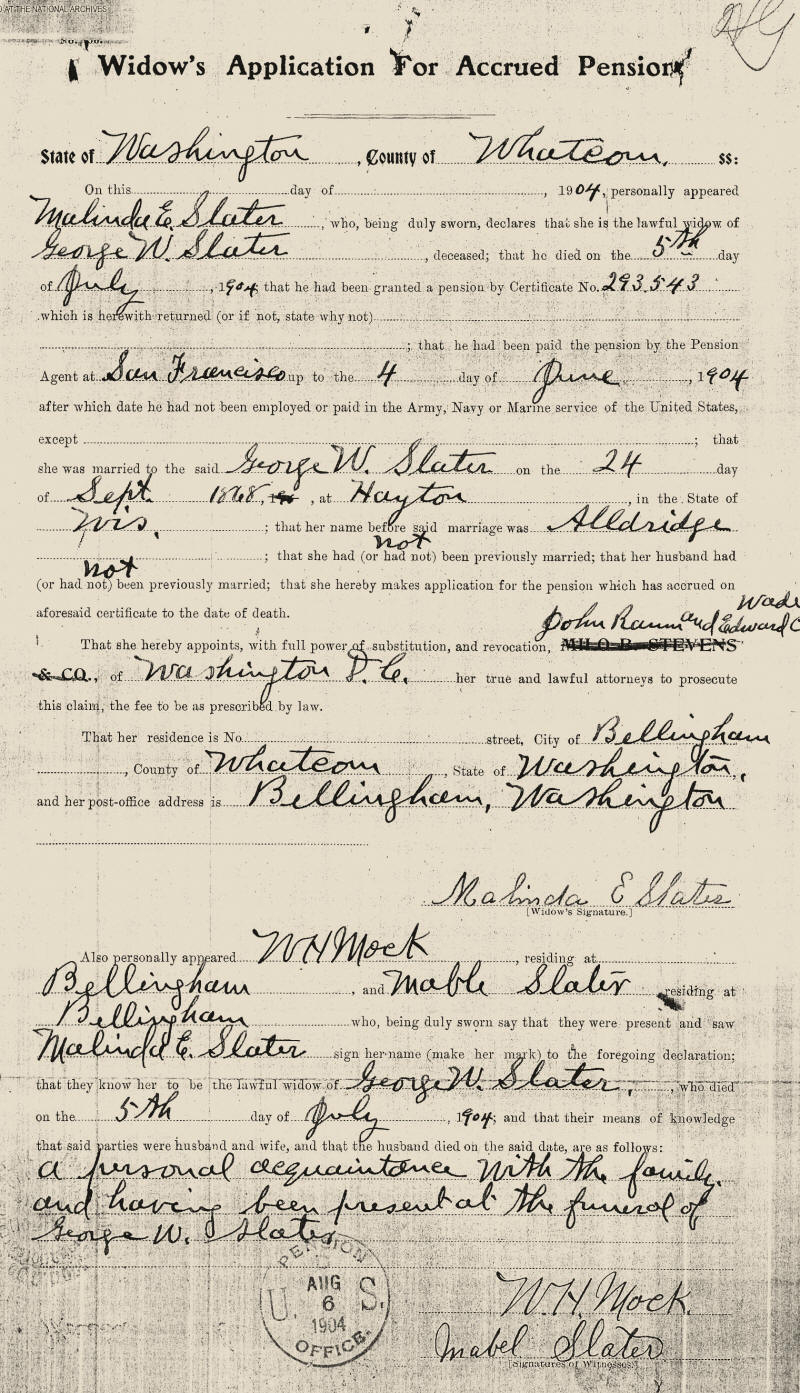 D AT THE NATIONAL ARCHIVES
Widow's Application For Accrued Pension
State of Washington, County of Whatcom, ss:
On this day of , 1904, personally appeared
Malinda E. Slater, who, being duly sworn, declares that she is the lawful widow of
George W. Slater, deceased; that he died on the 5th day
of July, 1904; that he had been granted a pension by Certificate No. 293.543
which is herewith returned (or if not, state why not)
; that he had been paid the pension by the Pension
Agent at San Francisco up to the 4 day of June, 1904
after which date he had not been employed or paid in the Army, Navy or Marine service of the United States,
except ; that
she was married to the said George W. Slater on the 24 day
of Sept. 1868, 190 , at Hayton, in the State of
Wis. ; that her name before said marriage was Alldridge
not
; that she had (or had not) been previously married; that her husband had
not
(or had not) been previously married; that she hereby makes application for the pension which has accrued on
aforesaid certificate to the date of death.
John Raum and Edward C Wade
That she hereby appoints, with full power of substitution, and revocation, MILO B. STEVENS
& CO., of Washington D.C. her true and lawful attorneys to prosecute
this claim, the fee to be as prescribed by law.
That her residence is No. street, City of Bellingham
, County of Whatcom, State of Washington,
and her post-office address is Bellingham, Washington
Malinda E Slater
[Widow's Signature.]
Also personally appeared W H Mock, residing at
Bellingham, and Mable Slater residing at
Bellingham who, being duly sworn say that they were present and saw
Malinda E. Slater sign her name (make her mark) to the foregoing declaration;
that they know her to be the lawful widow of George W. Slater, , who died
on the 5th day of July, 1904; and that their means of knowledge
that said parties were husband and wife, and that the husband died on the said date, are as follows:
a personal acquaintance with the family,
and having been present at the funeral of
George W. Slater
PENSION
AUG
U. 6 S.
1904
OFFICE.
W. H. Mock.
Mabel Slater
[Signatures of Witnesses.]